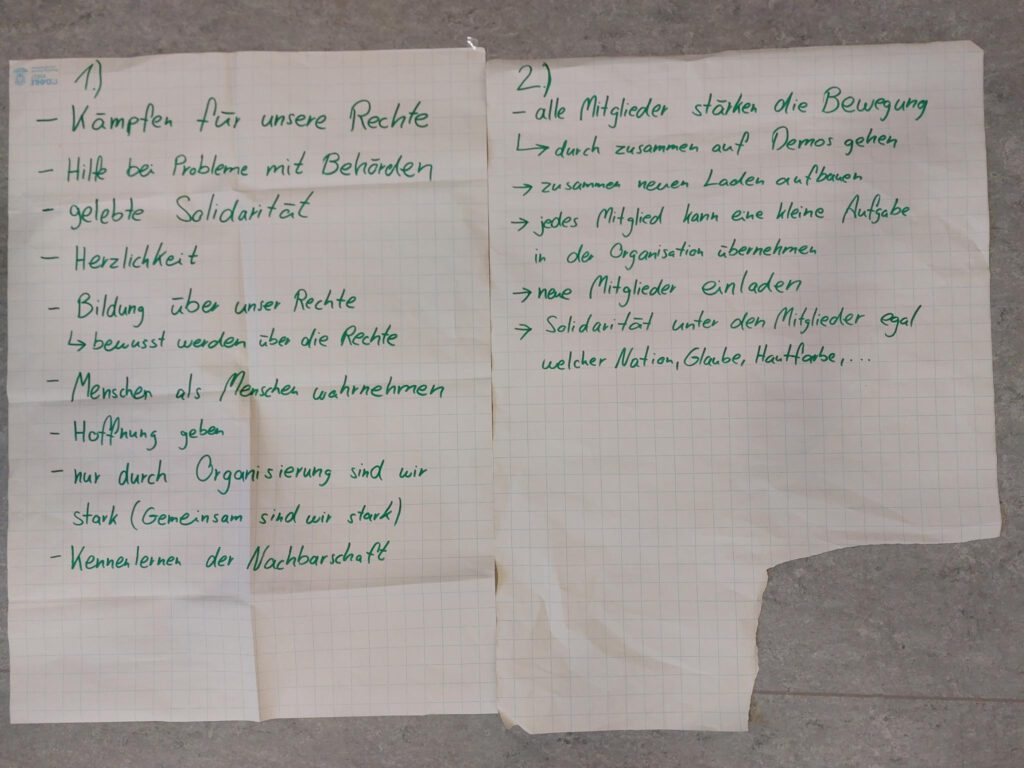 1.)
- Kämpfen für unsere Rechte
- Hilfe bei Probleme mit Behörden
- gelebte Solidarität
- Herzlichkeit
- Bildung über unser Rechte
↳ bewusst werden über die Rechte
- Menschen als Menschen wahrnehmen
- Hoffnung geben
- nur durch Organisierung sind wir
stark (Gemeinsam sind wir stark)
- Kennenlernen der Nachbarschaft
2.)
- alle Mitglieder stärken die Bewegung
↳ durch zusammen auf Demos gehen
→ zusammen neuen Laden aufbauen
→ jedes Mitglied kann eine kleine Aufgabe
in der Organisation übernehmen
→ neue Mitglieder einladen
→ Solidarität unter den Mitglieder egal
welcher Nation, Glaube, Hautfarbe,...